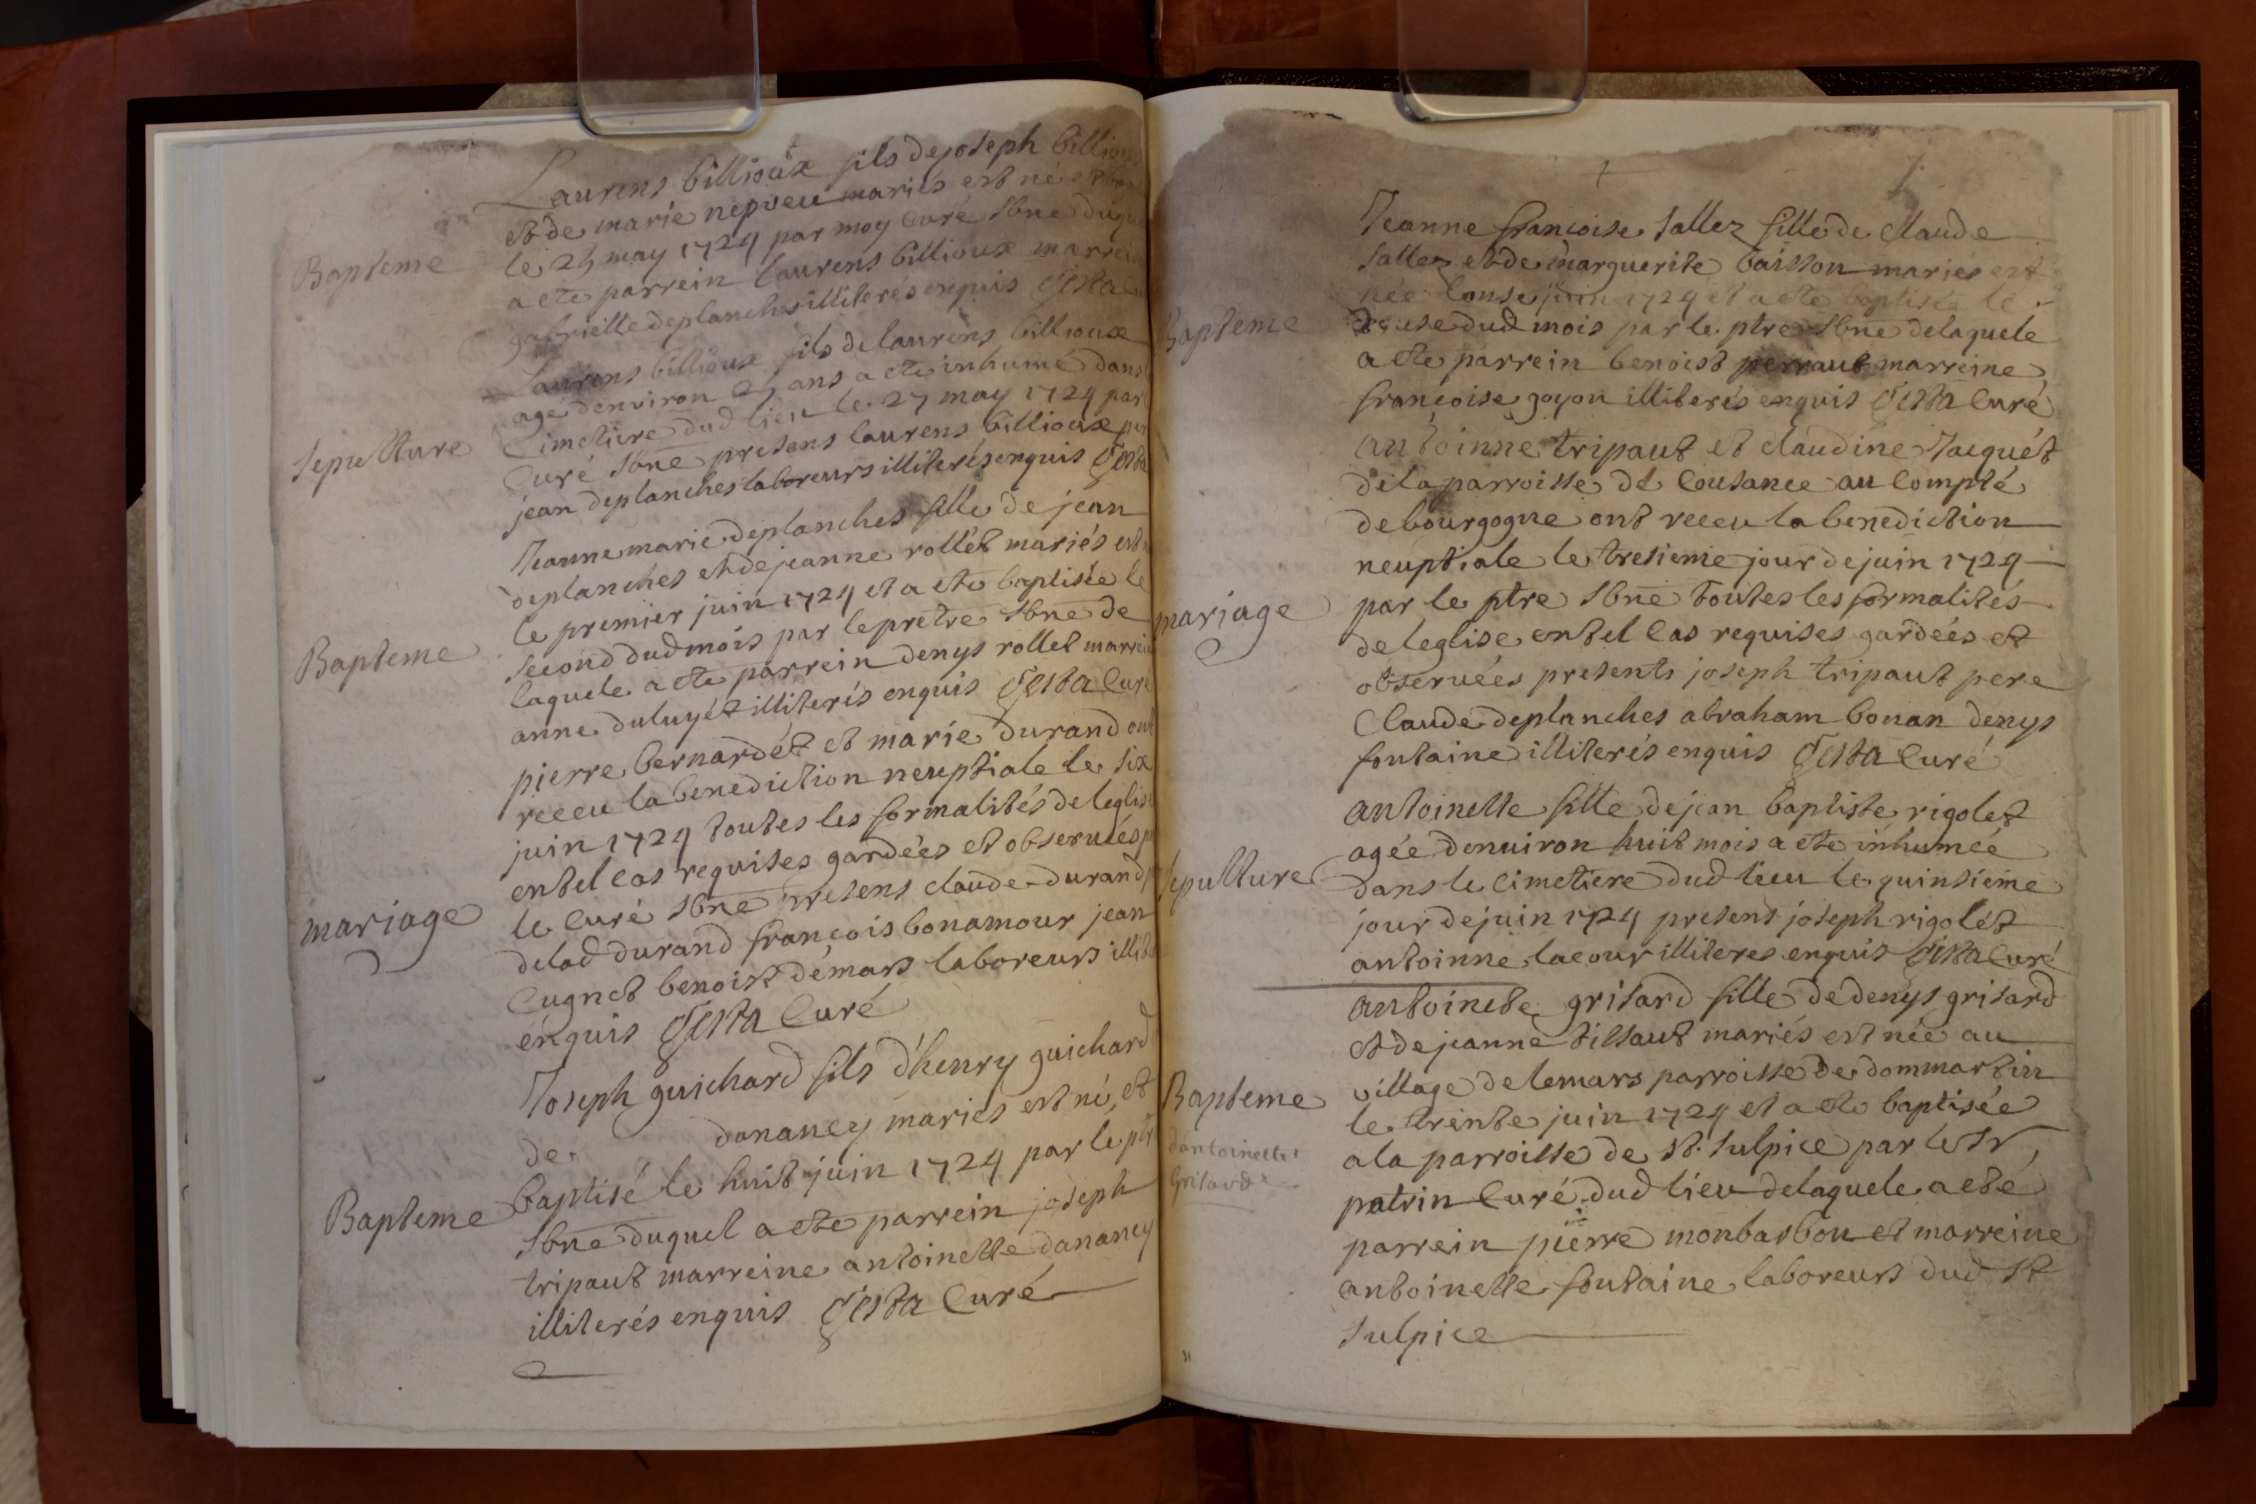 Bapteme
Laurens billioux fils de joseph
et de marie nepveu mariés est né et
le 25 may 1724 par moy curé sbne
a ete parrein laurens billioux
gabrielle deplanches illiterés enquis Gesta
Sepulture
Laurens billioux fils de laurens billioux
agé denviron 25 ans a ete inhumé dans
cimetiere dud lieu le 27 may 1724 par
curé sbne presens laurens billioux
jean deplanches laboreurs illiterés enquis Gesta
Bapteme
Jeanne marie deplanches fille de jean
deplanches et de jeanne rollet mariés est
le premier juin 1724 et a ete baptisée le
second dud mois par le pretre sbne de
laquele a ete parrein denys rollet
anne duluyét illiterés enquis Gesta Curé
mariage
pierre bernardét et marie durand
receu la benediction neuptiale le six
juin 1724 toutes les formalités de leglise
en tel cas requises gardées et observées
le curé sbne presens claude durand
delad durand françois bonamour jean
Cugnet benoist démars laboreurs
enquis Gesta Curé
Bapteme
Joseph guichard fils d'henry guichard
de dananey mariés est né et
baptisé le huit juin 1724 par le
sbne duquel a ete parrein joseph
tripaut marreine antoinette dananey
illiterés enquis Gesta Curé
Bapteme
Jeanne françoise sallez fille de claude
sallez et de marguerite mariés est
née lonse juin 1724 et a ete baptisée le
dud mois par le ptre sbne delaquele
a ete parrein benoist perraut marreine
françoise goyon illiterés enquis Gesta Curé
mariage
antoinne tripaut et claudine Jacquét
de la parroisse de Cousance au Compté
de bourgogne ont receu la benediction
neuptiale le tresieme jour de juin 1724
par le ptre sbne toutes les formalités
de leglise en tel cas requises gardées et
observées presents joseph tripaut pere
Claude deplanches abraham bonan denys
fontaine illiterés enquis Gesta Curé
sepulture
antoinette fille de jean baptiste rigolet
agée denviron huit mois a ete inhumée
dans le cimetiere dud lieu le quinsieme
jour de juin 1724 presens joseph rigolét
antoinne lacour illiteres enquis Gesta Curé
Bapteme
dantoinette
Grisard
antoinete grisard fille de denys grisard
et de jeanne tissaut mariés est née au
village de lemars parroisse de dommartin
le trente juin 1724 et a ete baptisée
a la parroisse de St. Sulpice par le Sr
patrin Curé dud lieu delaquele a eté
parrein pierre monbarbon et marreine
antoinette fontaine laboreurs dud St
Sulpice